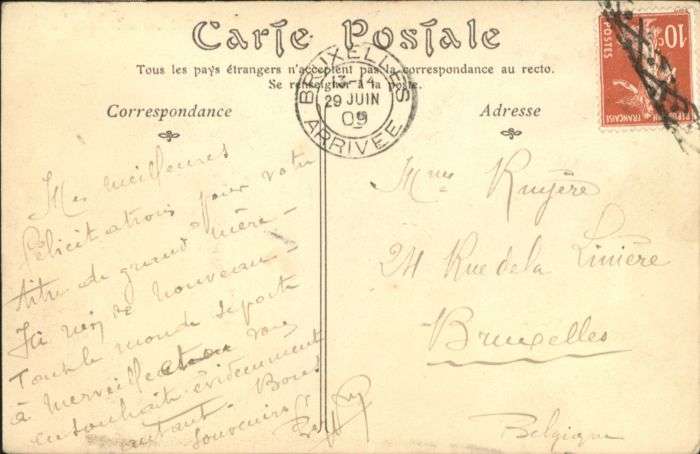 Carte Postale
Tous les pays étrangers n'acceptent pas la correspondance au recto.
Se renseigner à la poste.
Correspondance
Adresse
BRUXELLES
13-14
29 JUIN
09
ARRIVÉE
10c
POSTES
REPUBLIQUE FRANÇAISE
Mes meilleures
félicitations pour votre
titre de grand'mère -
Ici rien de nouveau -
Tout le monde se porte
à merveille vous
en souhaite évidemment
autant. Bons
souvenirs
Mme Ruyère
24 Rue de la Linière
Bruxelles
Belgique